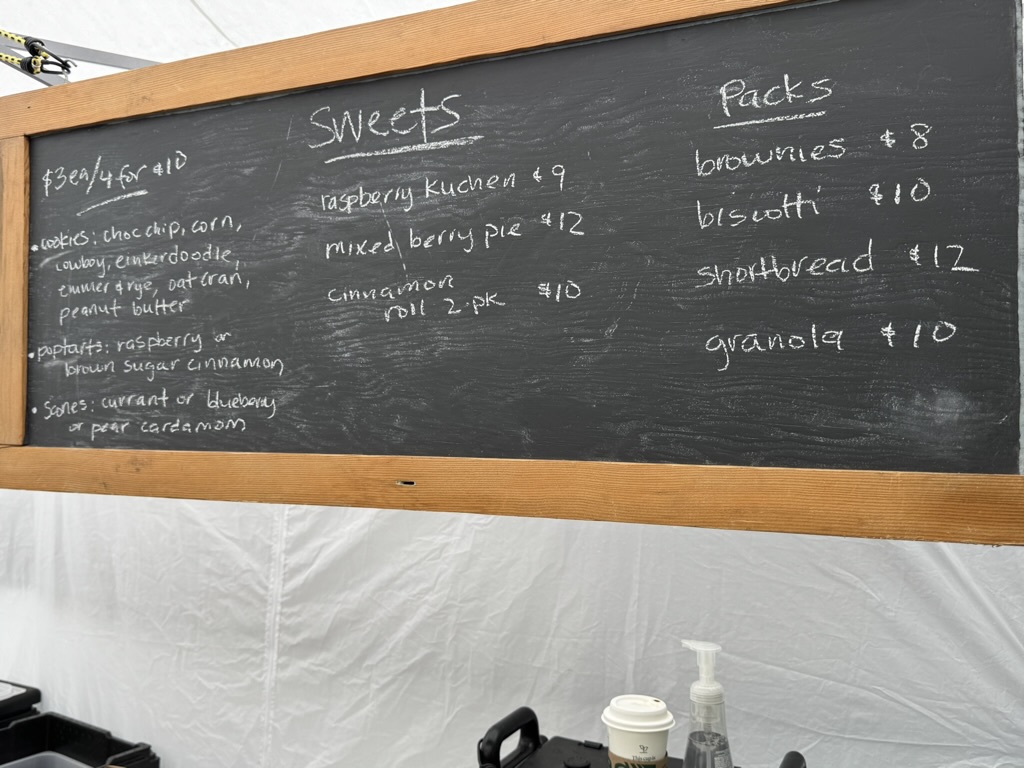 $3ea/4 for $10
• cookies: choc chip, corn,
cowboy, einkerdoodle,
emmer & rye, oat cran,
peanut butter
• poptarts: raspberry or
brown sugar cinnamon
• scones: currant or blueberry
or pear cardamom
Sweets
raspberry kuchen $9
mixed berry pie $12
cinnamon
roll 2-pk $10
Packs
brownies $8
biscotti $10
shortbread $12
granola $10